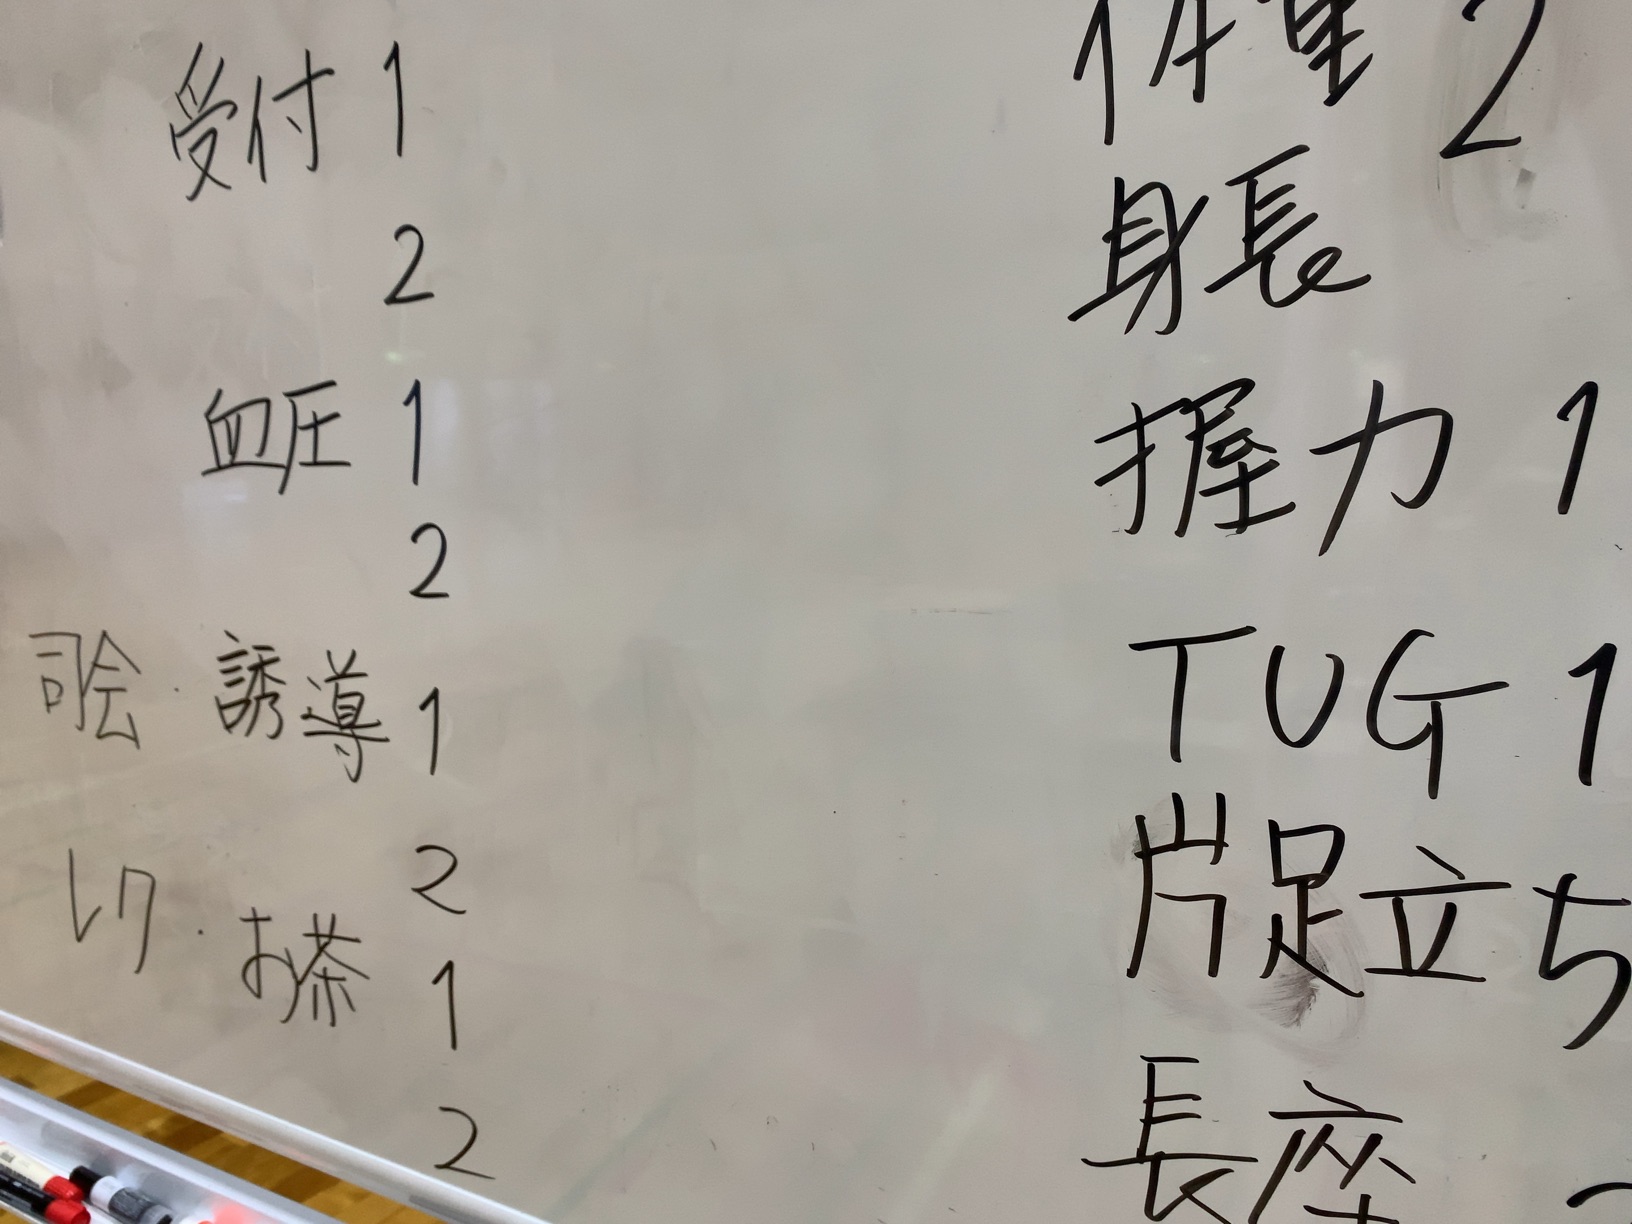 受付 1
2
血圧 1
2
司会・誘導 1
2
レク・お茶 1
2
体重 2
身長
握力 1
TUG 1
片足立ち
長座